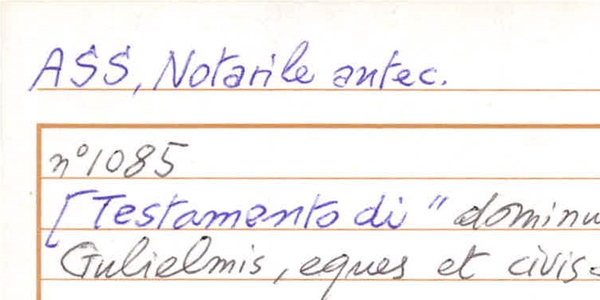 ASS, Notarile antec.
n° 1085
[Testamento di " dominu
Gulielmis, eques et civis